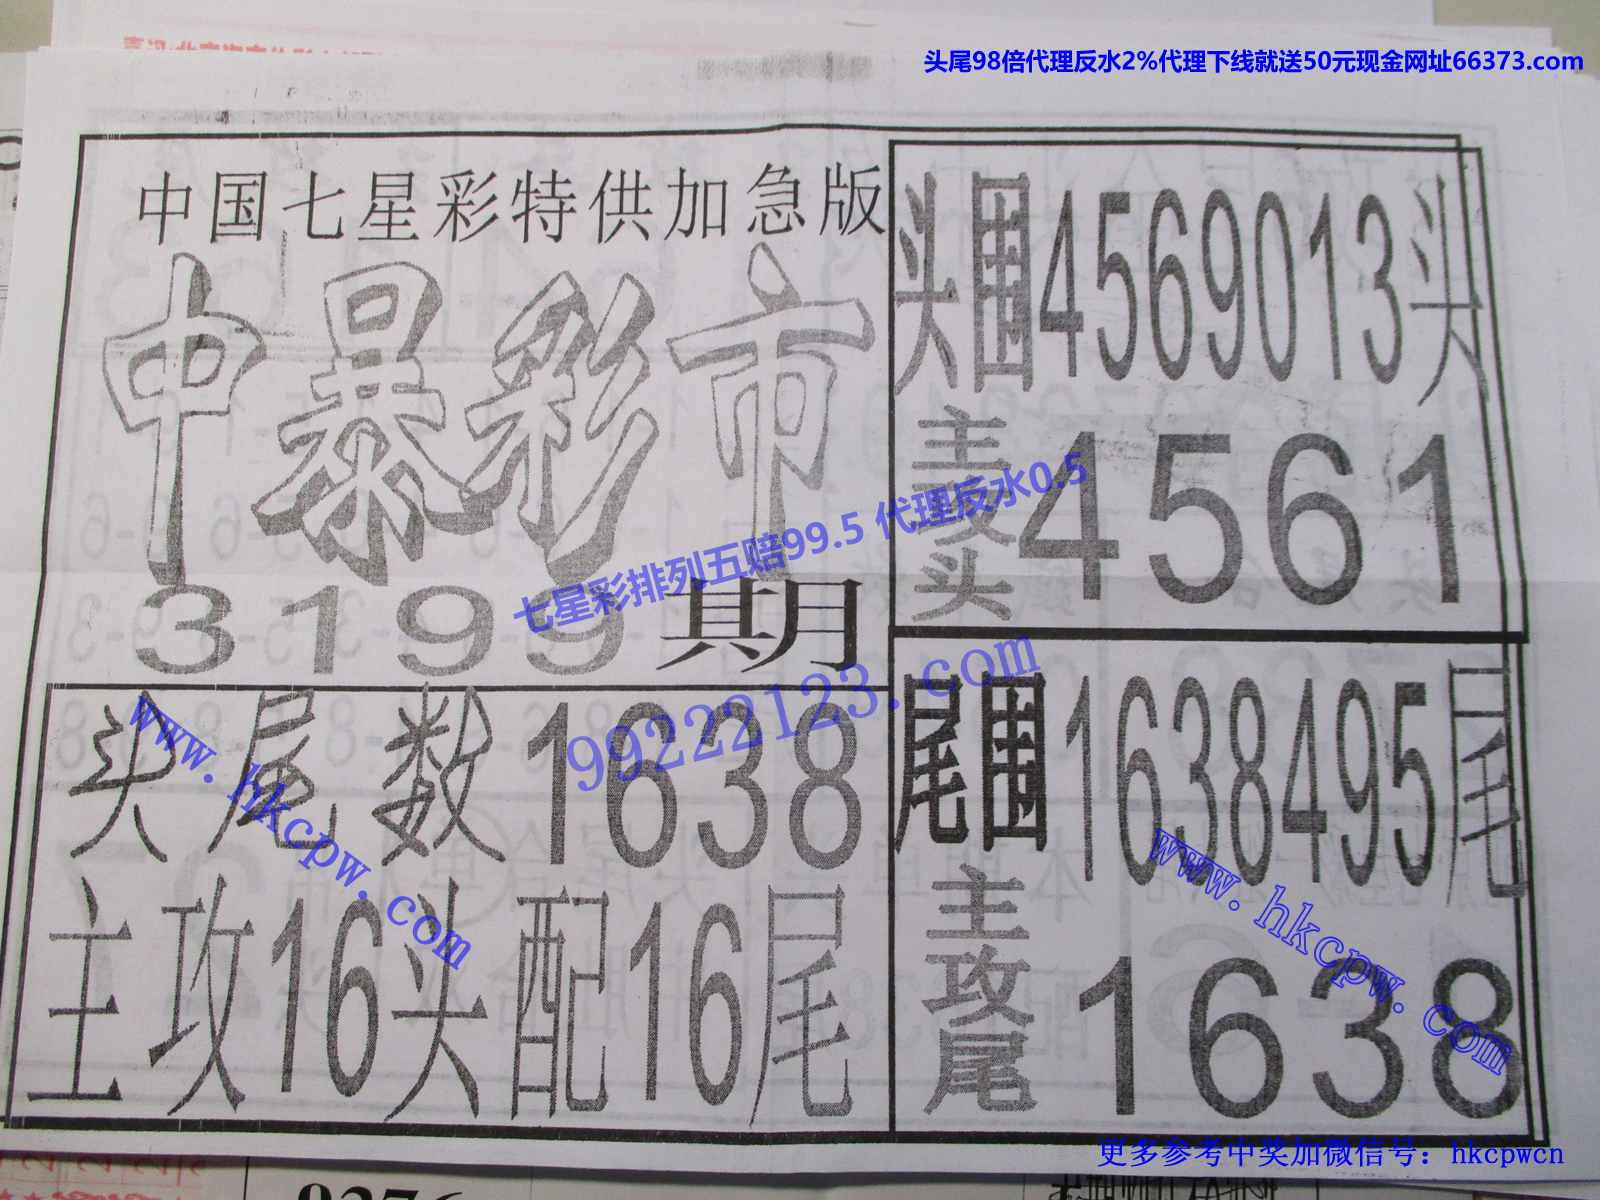 头尾98倍代理反水2%代理下线就送50元现金网址66373.com
中国七星彩特供加急版
中暴彩市
3199期
头尾数1638
主攻16头配16尾
头围4569013头
主攻头4561
尾围1638495尾
主攻尾1638
七星彩排列五赔99.5 代理反水0.5
99222123.com
www.hkcpw.com
www.hkcpw.com
更多参考中奖加微信号：hkcpwcn